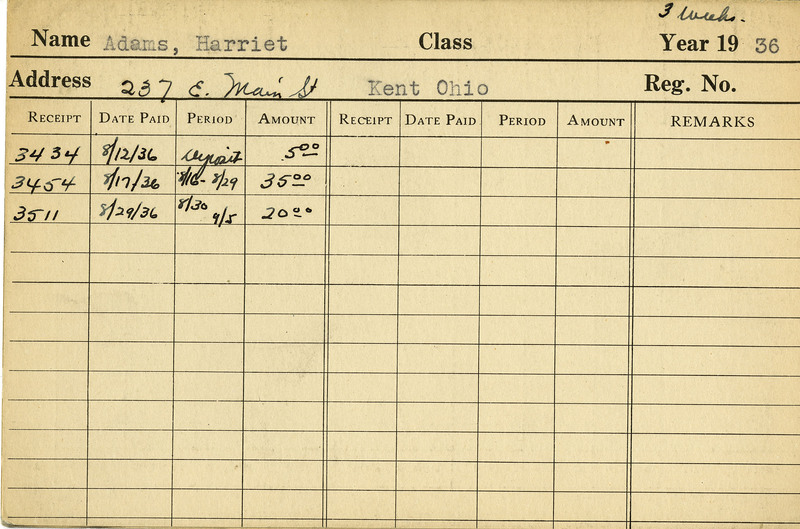 3 weeks.
Name Adams, Harriet Class Year 19 36
Address 237 E. Main St Kent Ohio Reg. No.
RECEIPT DATE PAID PERIOD AMOUNT RECEIPT DATE PAID PERIOD AMOUNT REMARKS
3434 8/12/36 deposit 5.00
3454 8/17/36 8/16 - 8/29 35.00
3511 8/29/36 8/30 9/5 20.00